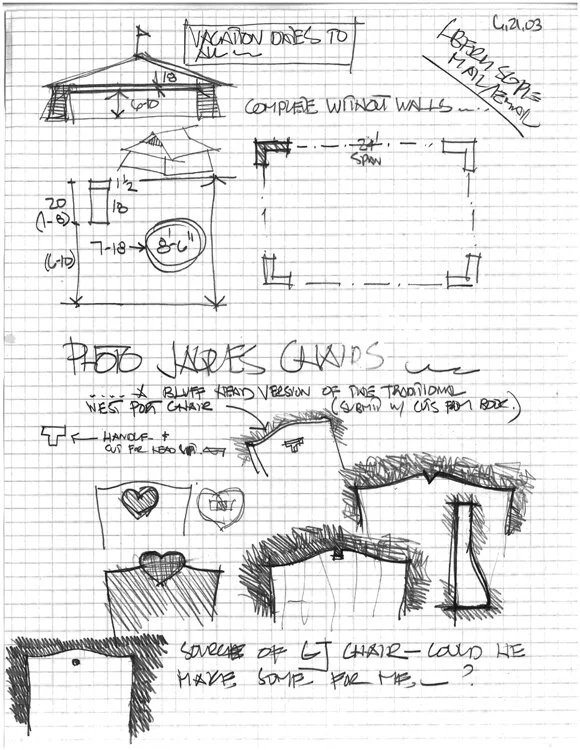 6.21.03
VACATION DATES TO
ALL
18
6-10
COMPLETE WITHOUT WALLS
24'
SPAN
1 1/2
20
18
(1-8)
7-18
8'-6"
(6-10)
PHOTO JAQUES CHAIRS
.... A BLUFF HEAD VERSION OF THE TRADITIONAL
WEST PORT CHAIR
(SUBMIT W/ CUTS FROM BOOK.)
HANDLE &
CUT FOR HEAD
SOURCE OF GJ CHAIR - COULD HE
MAKE SOME FOR ME, ?